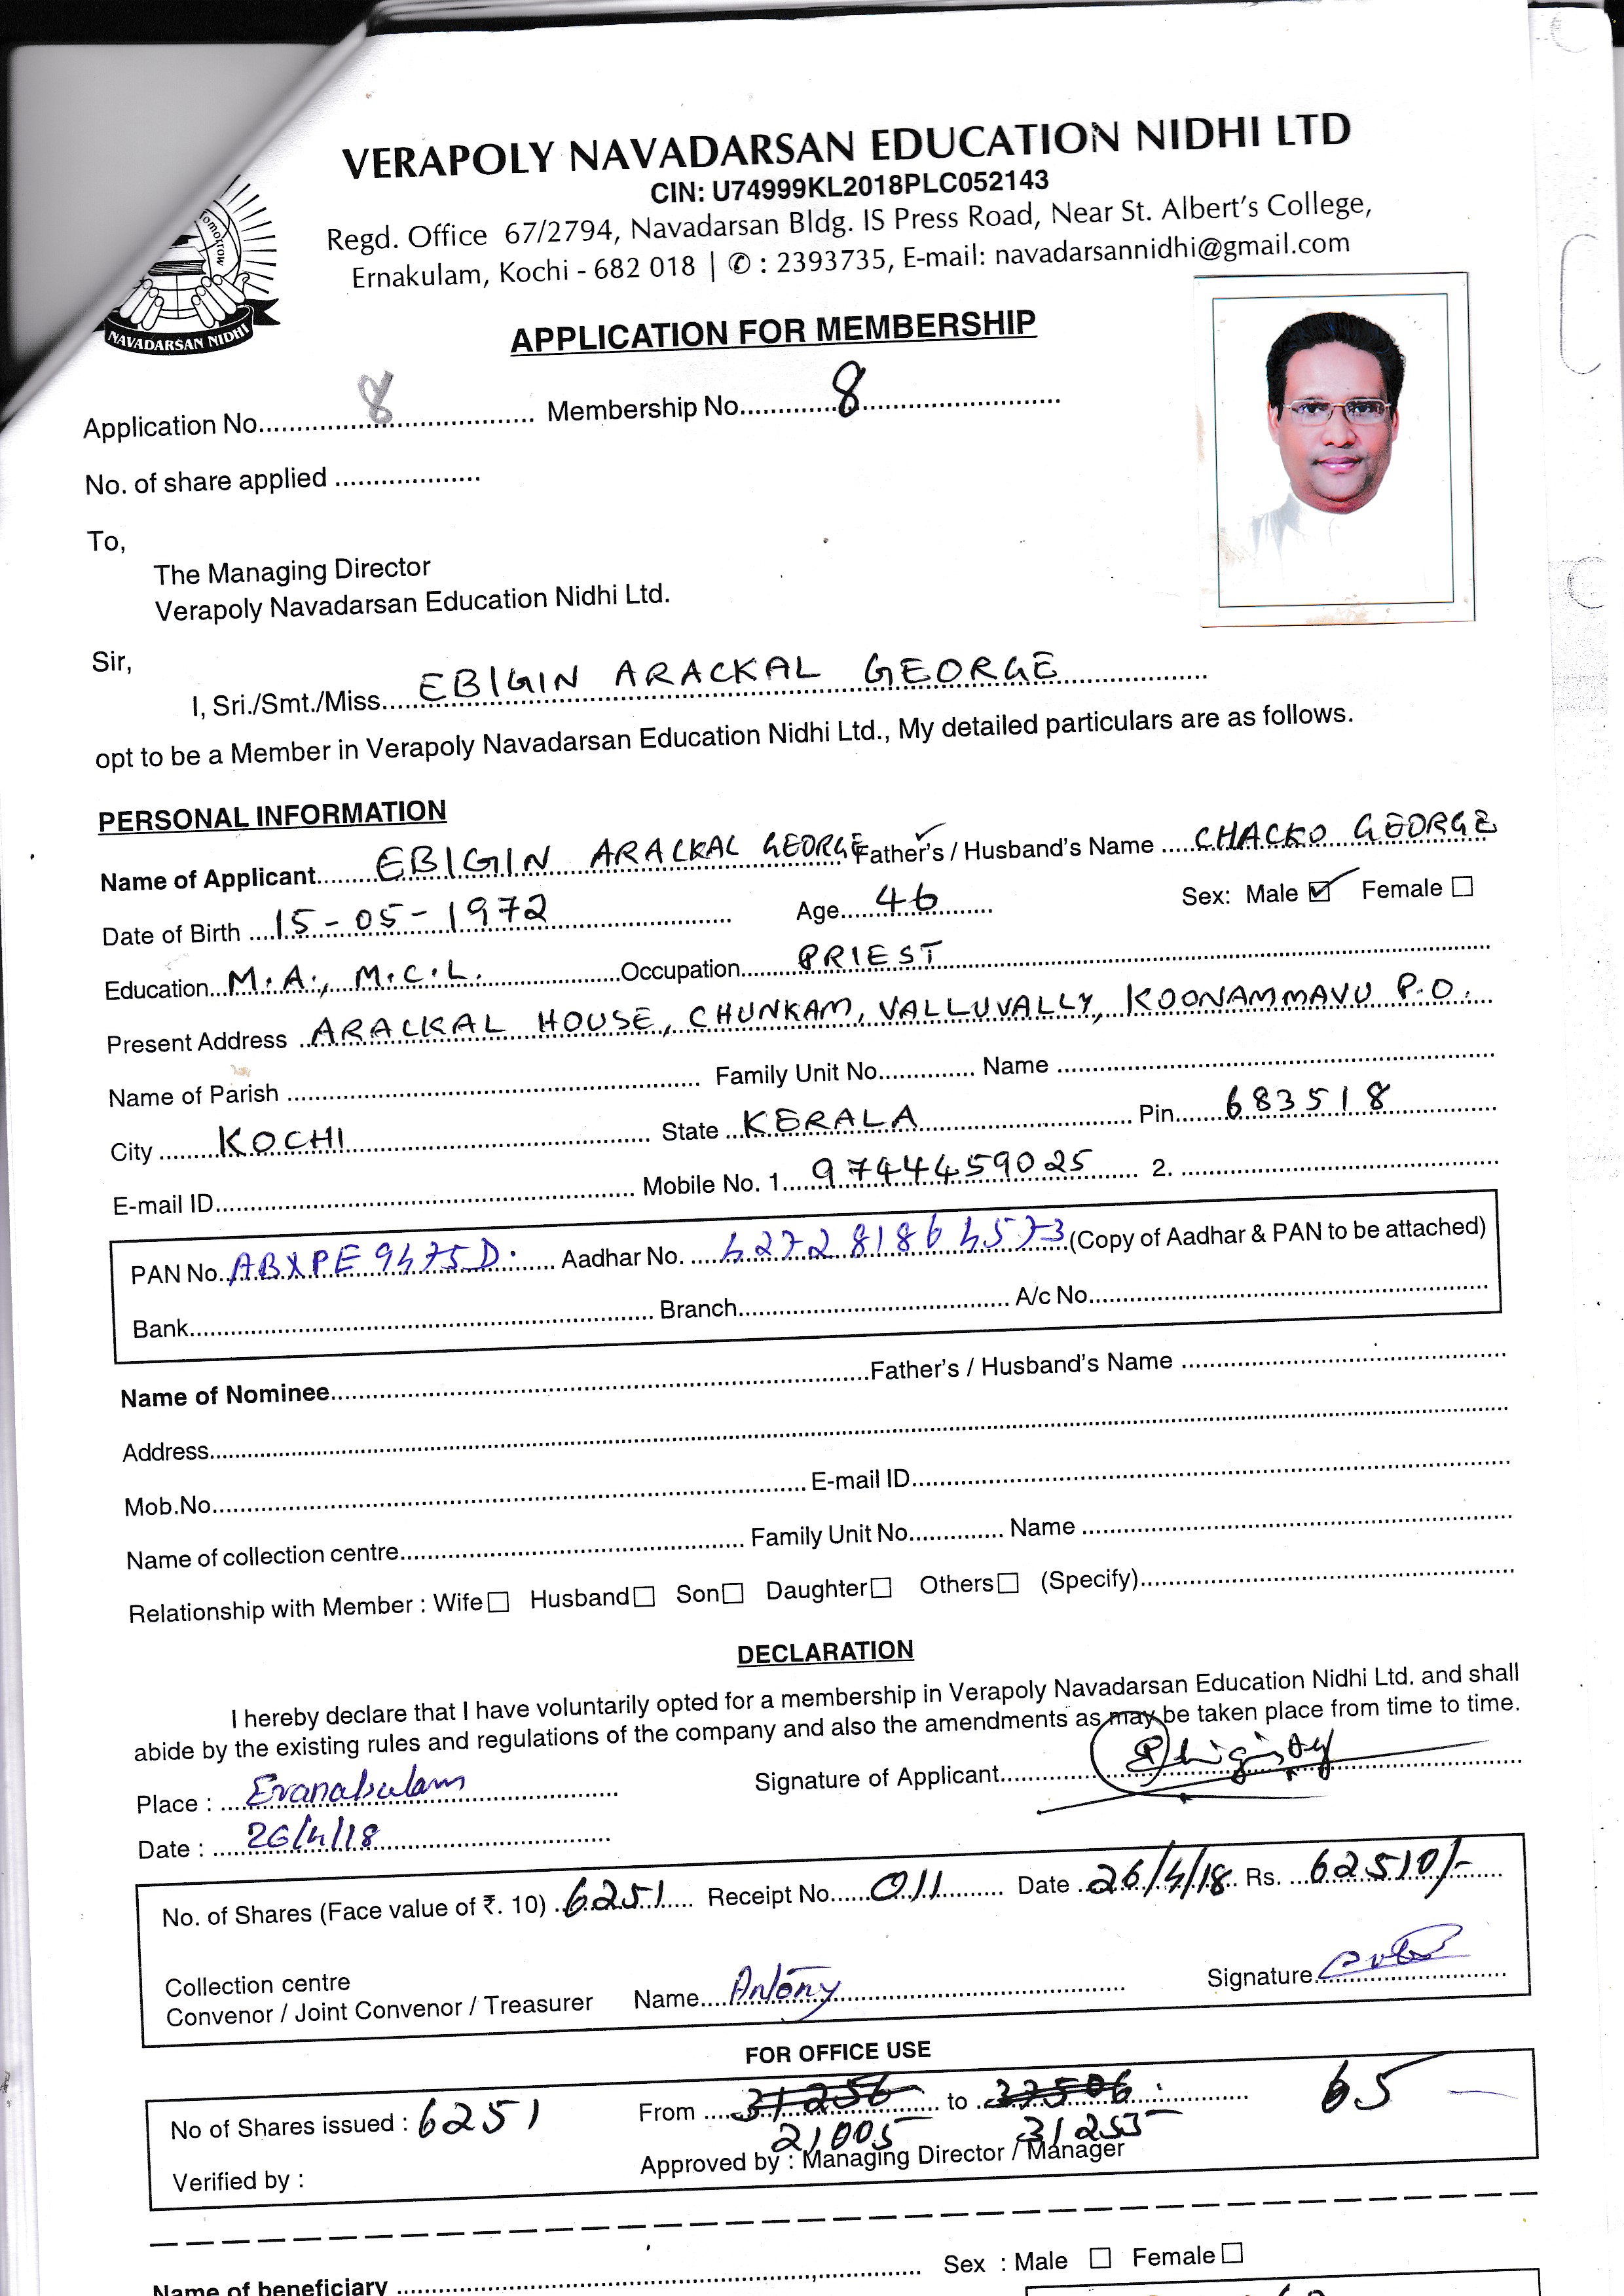 VERAPOLY NAVADARSAN EDUCATION NIDHI LTD
CIN: U74999KL2018PLC052143
Regd. Office 67/2794, Navadarsan Bldg. IS Press Road, Near St. Albert's College,
Ernakulam, Kochi - 682 018 | ✆ : 2393735, E-mail: navadarsannidhi@gmail.com
Tomorrow
NAVADARSAN NIDHI
APPLICATION FOR MEMBERSHIP
Application No. 8 Membership No. 8
No. of share applied
To,
The Managing Director
Verapoly Navadarsan Education Nidhi Ltd.
Sir,
I, Sri./Smt./Miss. EBIGIN ARACKAL GEORGE
opt to be a Member in Verapoly Navadarsan Education Nidhi Ltd., My detailed particulars are as follows.
PERSONAL INFORMATION
Name of Applicant EBIGIN ARACKAL GEORGE Father's / Husband's Name CHACKO GEORGE
Date of Birth 15-05-1972 Age 46 Sex: Male ☑ Female ☐
Education M.A., M.C.L. Occupation PRIEST
Present Address ARACKAL HOUSE, CHUNKAM, VALLUVALLY, KOONAMMAVU P.O.
Name of Parish Family Unit No. Name
City KOCHI State KERALA Pin 683518
E-mail ID Mobile No. 1. 9744459025 2.
PAN No. ABXPE9475D. Aadhar No. 427281864573 (Copy of Aadhar & PAN to be attached)
Bank Branch A/c No.
Name of Nominee Father's / Husband's Name
Address
Mob.No. E-mail ID
Name of collection centre Family Unit No. Name
Relationship with Member : Wife ☐ Husband ☐ Son ☐ Daughter ☐ Others ☐ (Specify)
DECLARATION
I hereby declare that I have voluntarily opted for a membership in Verapoly Navadarsan Education Nidhi Ltd. and shall
abide by the existing rules and regulations of the company and also the amendments as may be taken place from time to time.
Place : Eranakulam Signature of Applicant
Date : 26/4/18
No. of Shares (Face value of ₹. 10) 6251 Receipt No. 011 Date 26/4/18 Rs. 62510/-
Collection centre
Convenor / Joint Convenor / Treasurer Name Antony Signature
FOR OFFICE USE
No of Shares issued : 6251 From 31256 to 37506 65
21005 31255
Verified by : Approved by : Managing Director / Manager
Sex : Male ☐ Female ☐
Name of beneficiary